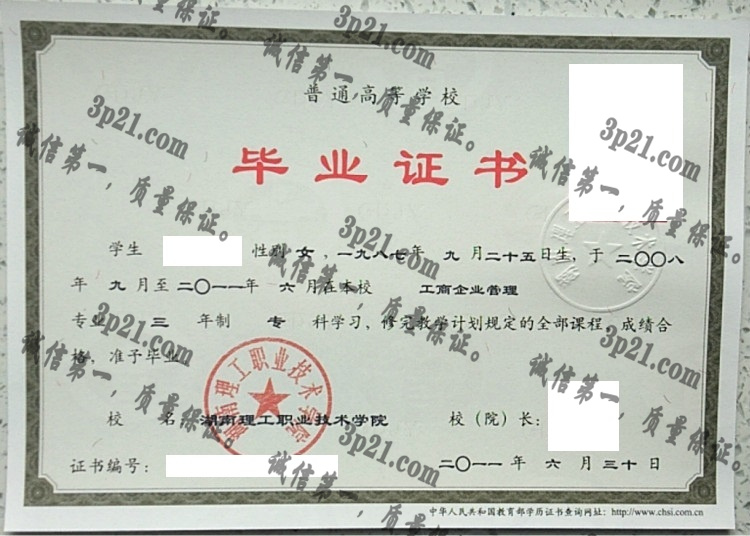 普通高等学校
毕业证书
学生 性别 女 , 一九八七年 九 月二十五日生, 于 二〇〇八
年 九 月至二〇一一年 六 月在本校 工商企业管理
专业 三 年制 专 科学习, 修完教学计划规定的全部课程, 成绩合
格, 准予毕业
校 名: 湖南理工职业技术学院 校(院)长:
证书编号: 二〇一一 年 六 月 三十 日
中华人民共和国教育部学历证书查询网址: http://www.chsi.com.cn
湖南理工职业技术学院
3p21.com
诚信第一,质量保证。
3p21.com
诚信第一,质量保证。
3p21.com
诚信第一,质量保证。
3p21.com
诚信第一,质量保证。
3p21.com
诚信第一,质量保证。
3p21.com
诚信第一,质量保证。
3p21.com
诚信第一,质量保证。